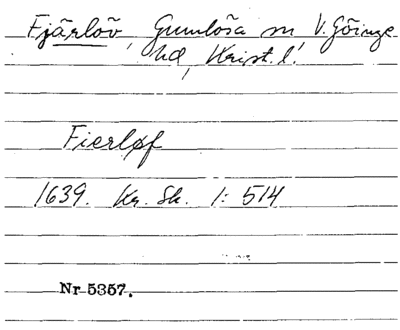 Fjärlöv, Gumlösa sn, V. Göinge
hd, Krist. l.
Fierløf
1639. Kr. Sk. 1: 514
Nr 5357.